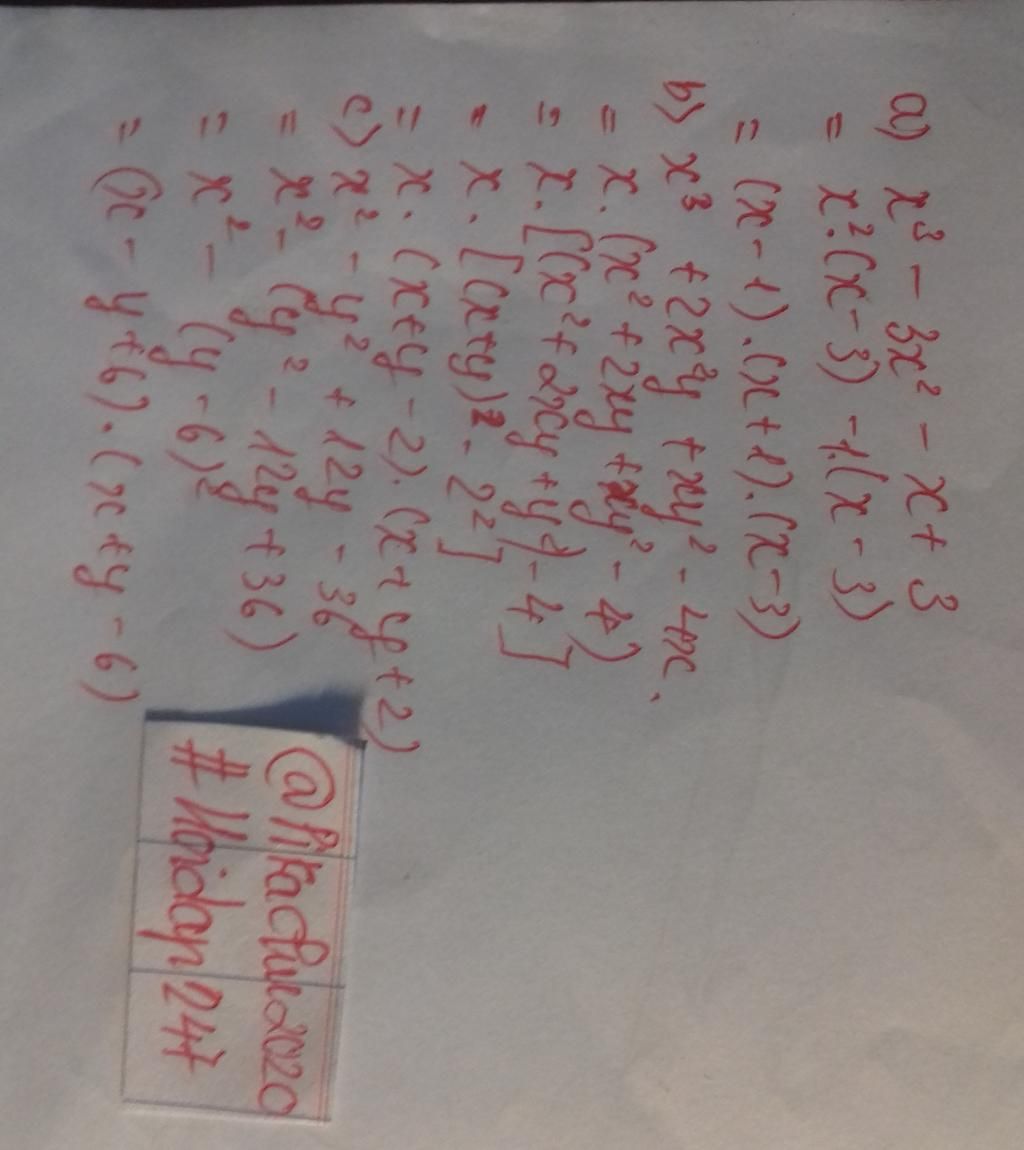 a) x³ - 3x² - x + 3
= x².(x - 3) - 1.(x - 3)
= (x - 1).(x + 1).(x - 3)
b) x³ + 2x²y + xy² - 4x.
= x.(x² + 2xy + y² - 4)
= x.[(x² + 2xy + y²) - 4]
= x.[(x + y)² - 2²]
= x.(x + y - 2).(x + y + 2)
c) x² - y² + 12y - 36
= x² - (y² - 12y + 36)
= x² - (y - 6)²
= (x - y + 6).(x + y - 6)
@Pikachuu2020
#Hoidap247